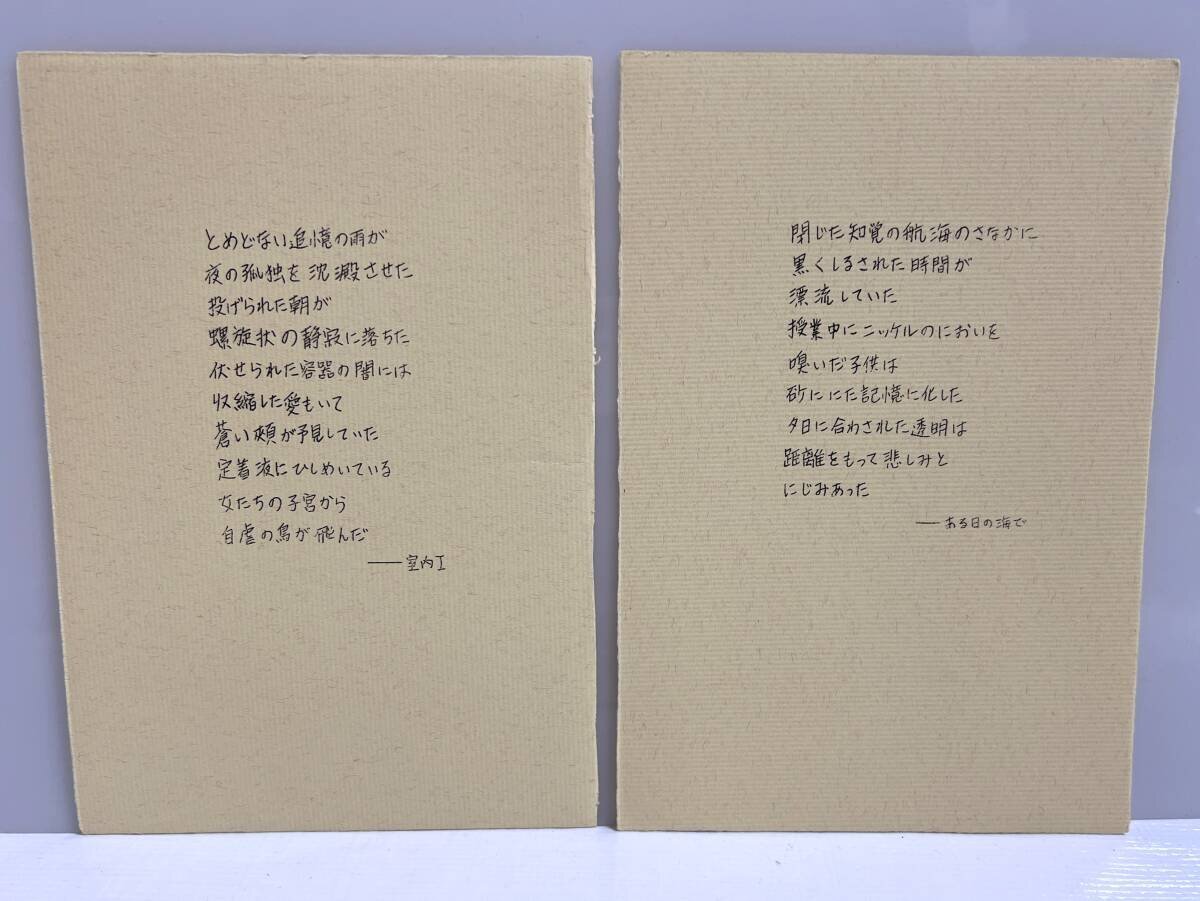 とめどない追憶の雨が
夜の孤独を沈澱させた
投げられた朝が
螺旋状の静寂に落ちた
伏せられた容器の闇には
収縮した愛もいて
蒼い頰が予見していた
定着液にひしめいている
女たちの子宮から
自虐の鳥が飛んだ
――室内I
閉じた知覚の航海のさなかに
黒くしるされた時間が
漂流していた
授業中にニッケルのにおいを
嗅いだ子供は
砂ににた記憶に化した
夕日に合わされた透明は
距離をもって悲しみと
にじみあった
――ある日の海で